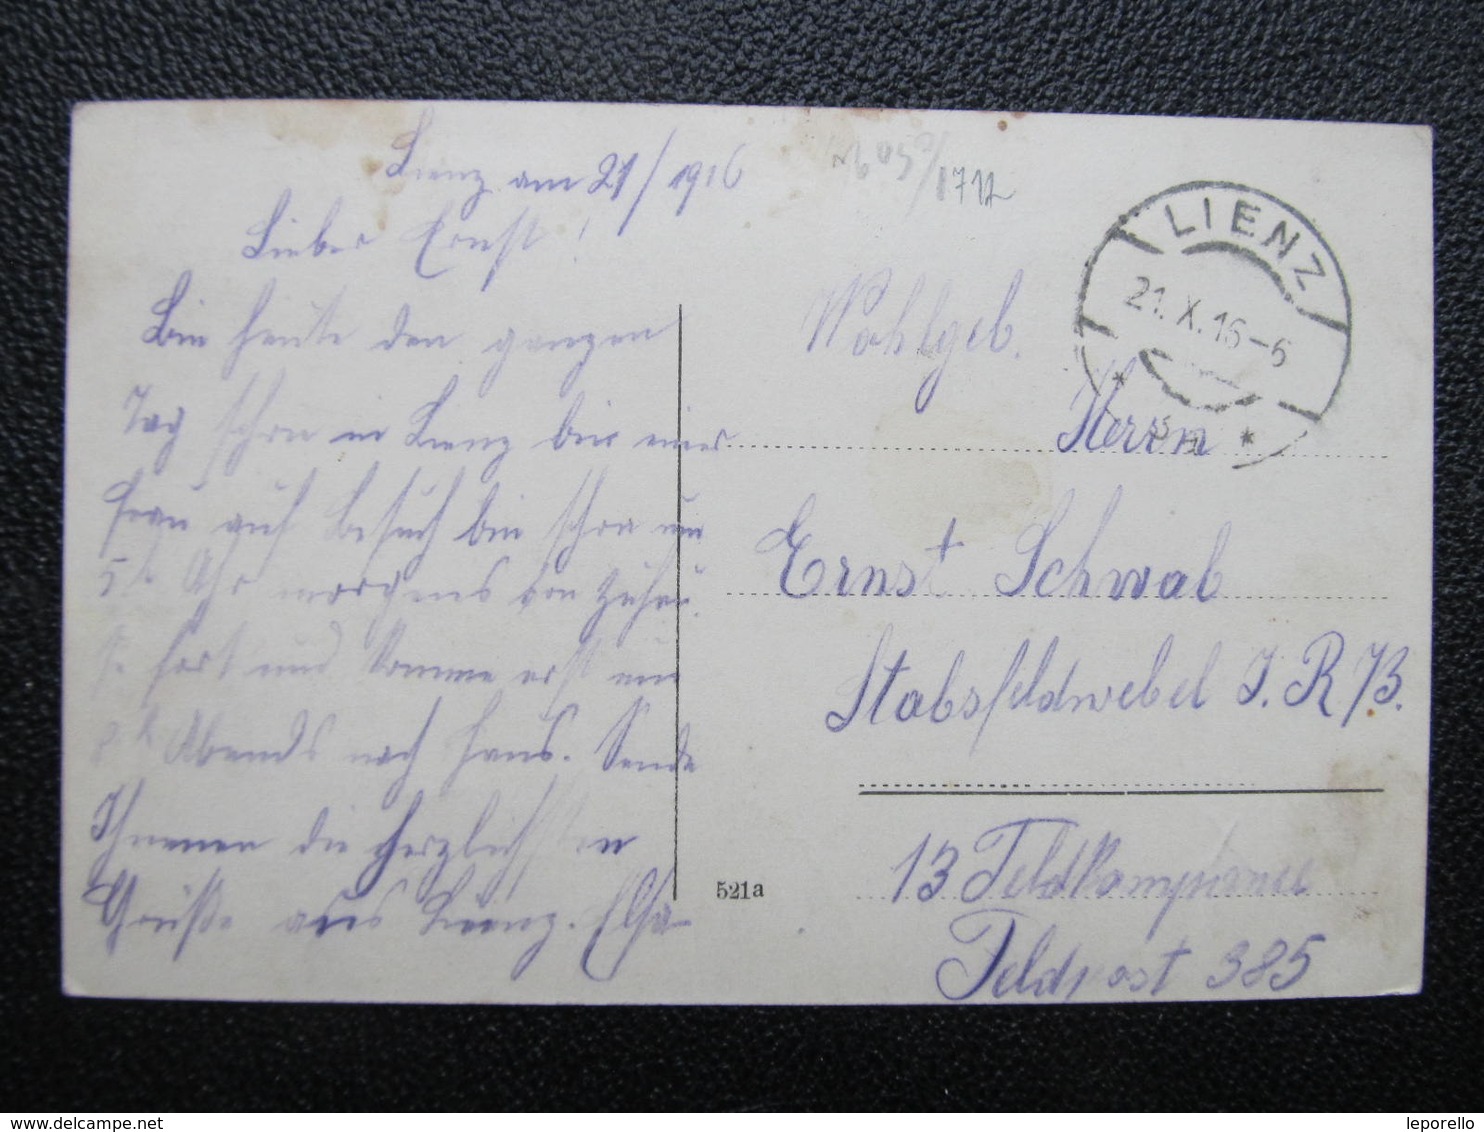 Lienz am 21/1916
Lieber Ernst!
Bin heute den ganzen
Tag schon in Lienz bin einer
Frau auf Besuch bin schon um
5 h Uhr morgens von Zuhau
se fort und komme erst um
8 h Abends nach Haus. Sende
Ihnenen die herzlichsten
Grüße aus Lienz. Elsa
1712
LIENZ
21.X.16-6
* *
Wohlgeb.
Herrn
Ernst Schwab
Stabsfeldwebel I. R 73.
13 Feldkompanee
Feldpost 385
521a
www.delcampe.net
leporello